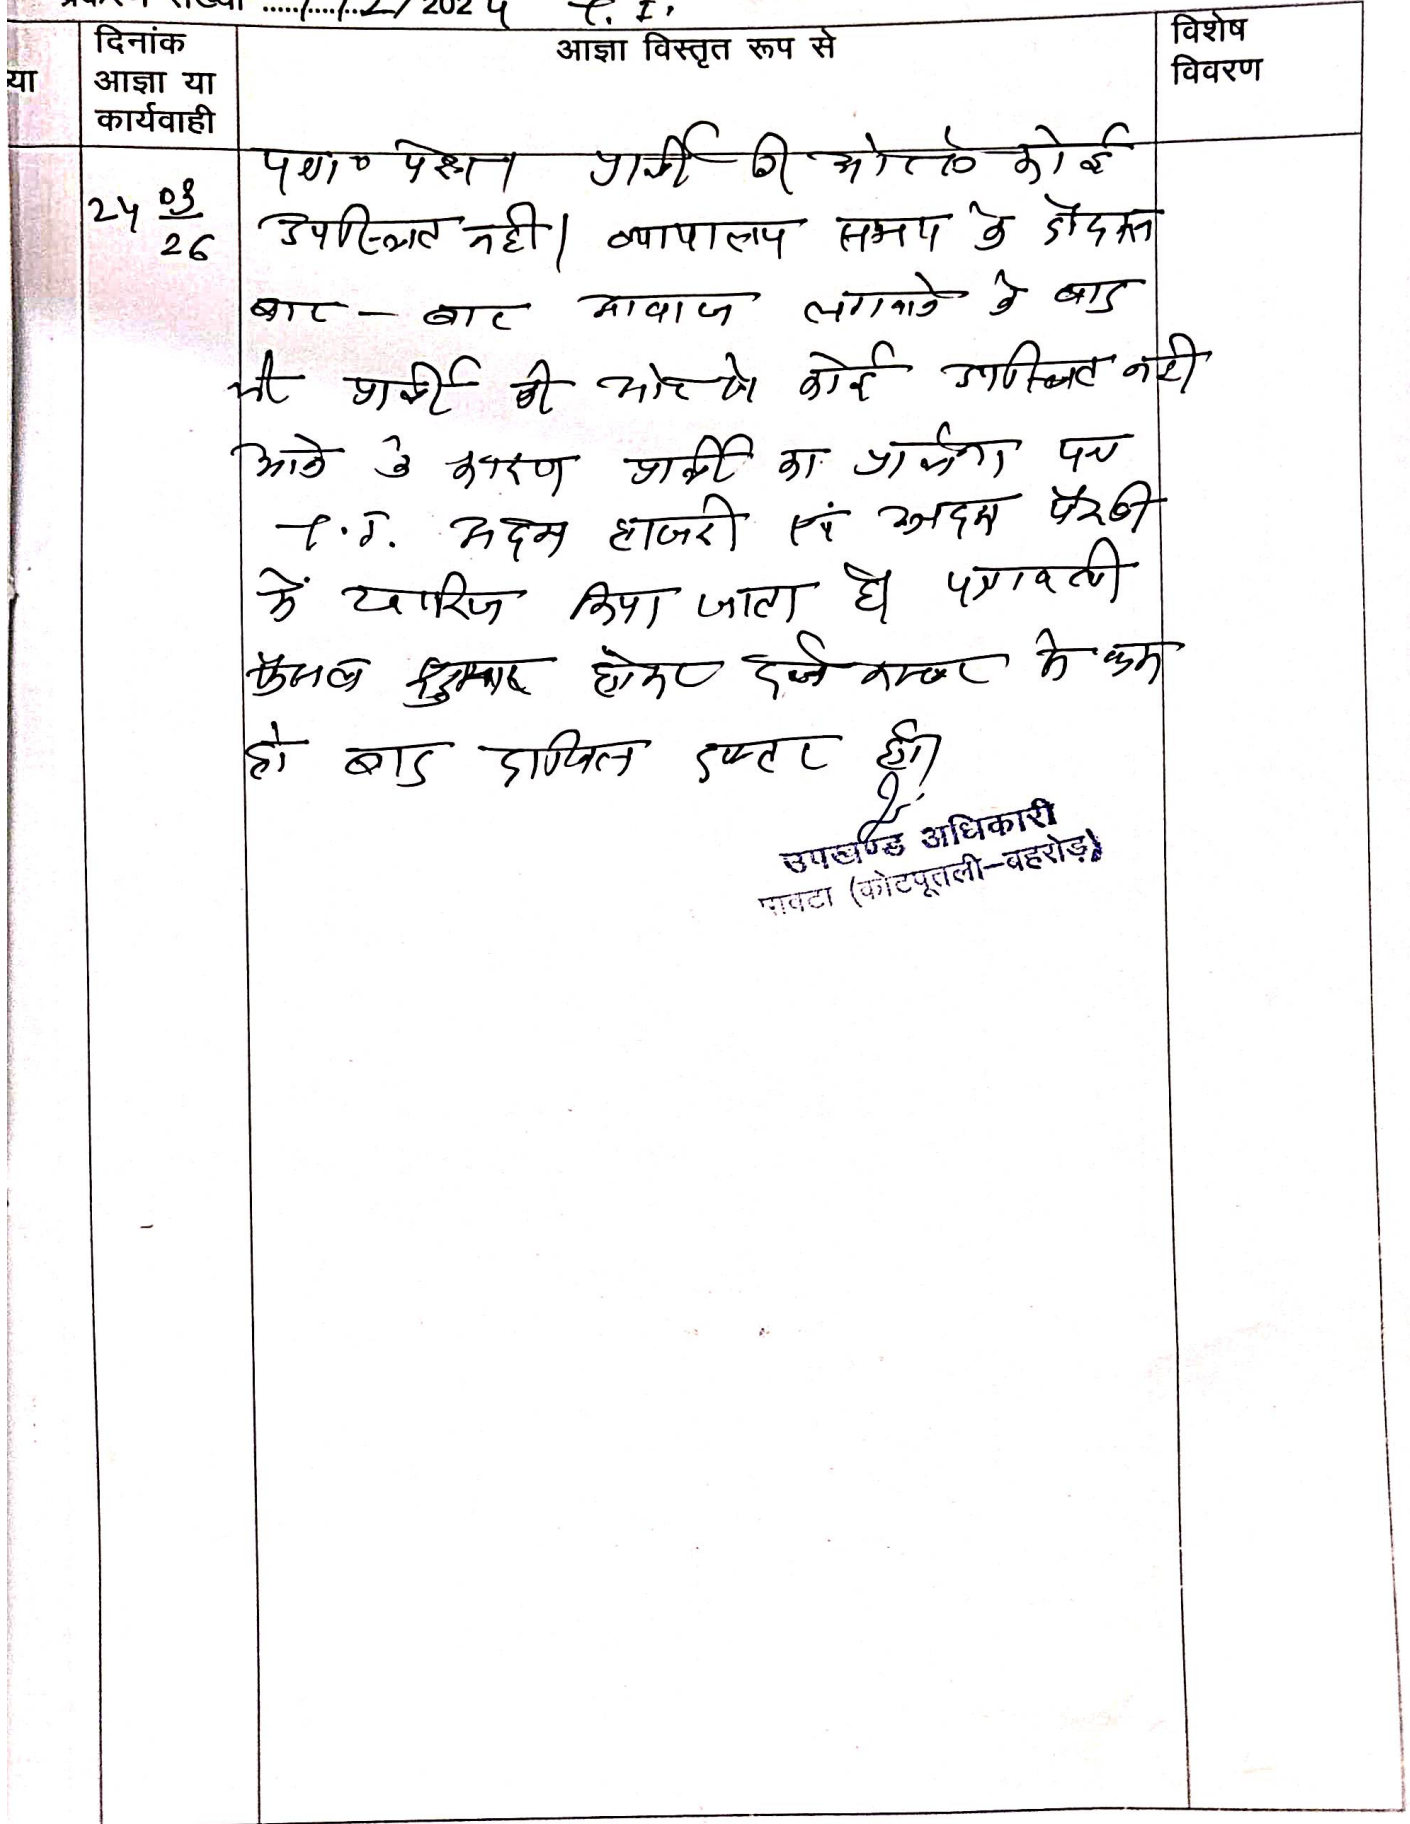 प्रकरण संख्या ....1.../...1.2/ 202 T. I.
दिनांक
आज्ञा या
कार्यवाही
आज्ञा विस्तृत रूप से
विशेष
विवरण
या
24 03/26
पत्रा० पेश। प्रार्थी की ओर से कोई
उपस्थित नही। न्यायालय समय के दौरान
बार - बार आवाज लगवाने के बाद
भी प्रार्थी की ओर से कोई उपस्थित नही
आने के कारण प्रार्थी का प्रार्थना पत्र
T.I. अदम हाजरी एवं अदम पैरवी
में खारिज किया जाता है पत्रावली
फैसल शुमार होकर दर्ज नम्बर से कम
हो बाद दाखिल दफ्तर हो।
उपखण्ड अधिकारी
पावटा (कोटपूतली-बहरोड़)